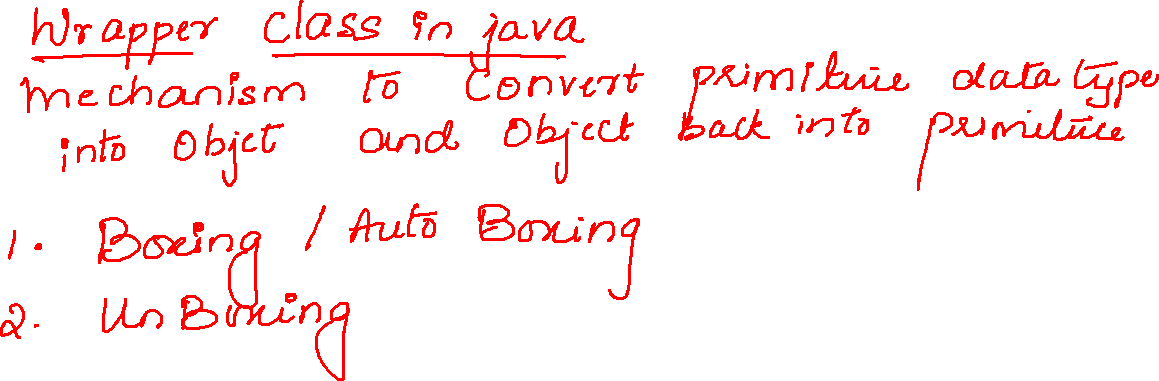 Wrapper class in java
Mechanism to Convert primitive data type
into Objct and Object back into primitive
1. Boxing / Auto Boxing
2. UnBoxing